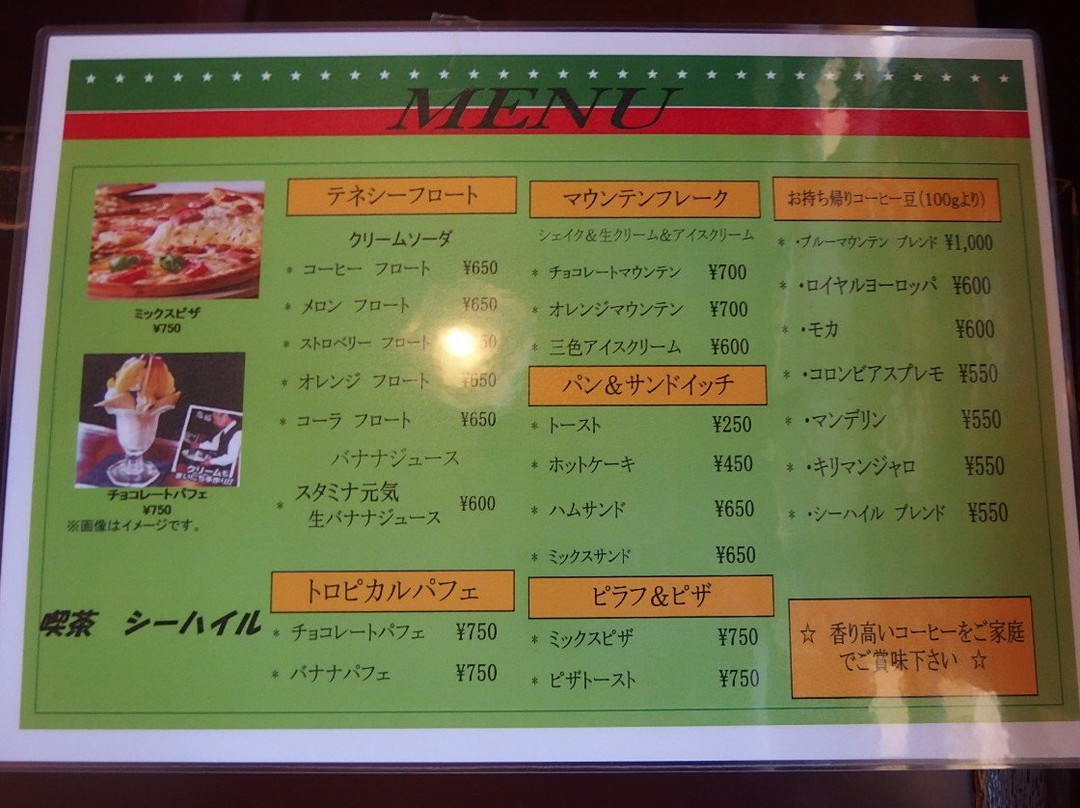 MENU
ミックスピザ
¥750
クリームも
まいにち手作り!!
チョコレートパフェ
¥750
※画像はイメージです。
喫茶 シーハイル
テネシーフロート
クリームソーダ
* コーヒー フロート ¥650
* メロン フロート ¥650
* ストロベリー フロート 50
* オレンジ フロート ¥650
* コーラ フロート ¥650
バナナジュース
* スタミナ元気
生バナナジュース ¥600
トロピカルパフェ
* チョコレートパフェ ¥750
* バナナパフェ ¥750
マウンテンフレーク
シェイク&生クリーム&アイスクリーム
* チョコレートマウンテン ¥700
* オレンジマウンテン ¥700
* 三色アイスクリーム ¥600
パン&サンドイッチ
* トースト ¥250
* ホットケーキ ¥450
* ハムサンド ¥650
* ミックスサンド ¥650
ピラフ&ピザ
* ミックスピザ ¥750
* ピザトースト ¥750
お持ち帰りコーヒー豆(100gより)
* ・ブルーマウンテン ブレンド ¥1,000
* ・ロイヤルヨーロッパ ¥600
* ・モカ ¥600
* ・コロンビアスプレモ ¥550
* ・マンデリン ¥550
* ・キリマンジャロ ¥550
* ・シーハイル ブレンド ¥550
☆ 香り高いコーヒーをご家庭
でご賞味下さい ☆